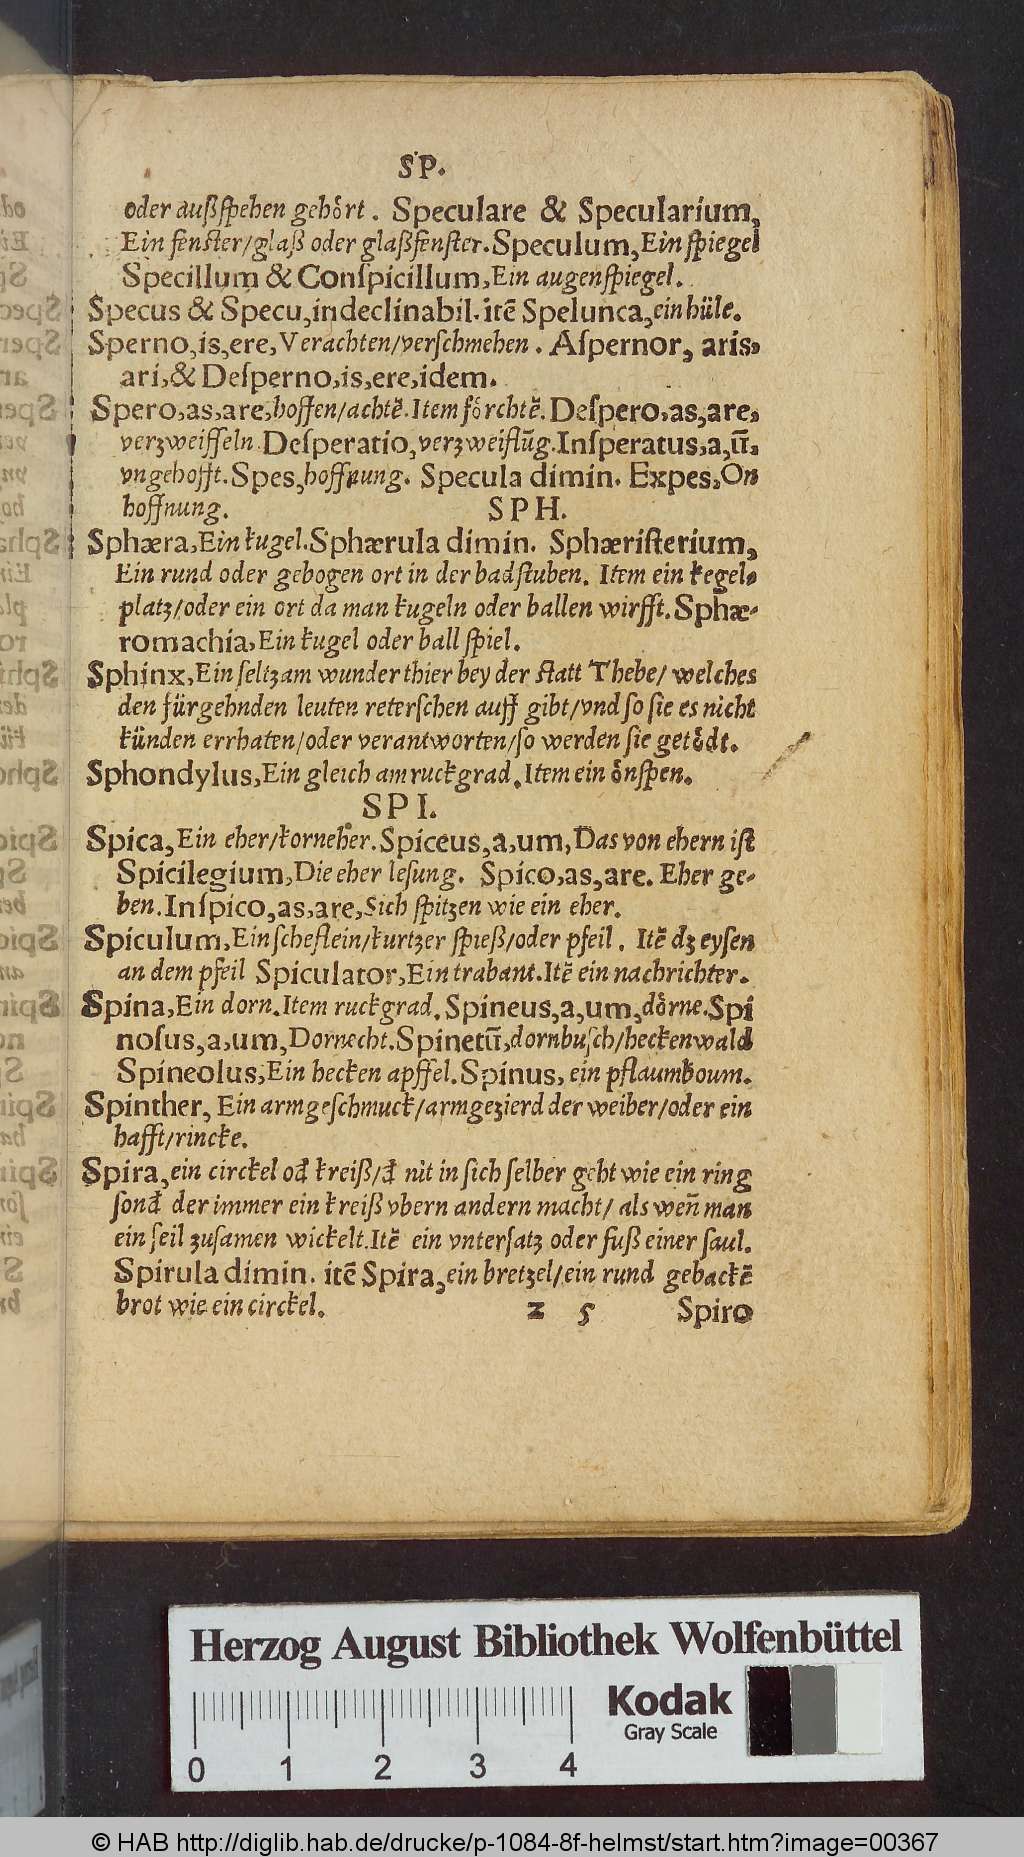 SP.
oder außſpehen gehoͤrt. Speculare & Specularium,
Ein fenſter/glaß oder glaßfenſter. Speculum, Ein ſpiegel
Specillum & Conſpicillum, Ein augenſpiegel.
Specus & Specu, indeclinabil. itē Spelunca, ein hüle.
Sperno, is, ere, Verachten/verſchmehen. Aſpernor, aris,
ari, & Deſperno, is, ere, idem.
Spero, as, are, hoffen/achtē. Item foͤrchtē. Deſpero, as, are,
verzweiffeln. Deſperatio, verzweiflūg. Inſperatus, a, ū,
vngehofft. Spes, hoffnung. Specula dimin. Expes, On
hoffnung.
SPH.
Sphæra, Ein kugel. Sphærula dimin. Sphæriſterium,
Ein rund oder gebogen ort in der badſtuben. Item ein kegel-
platz/oder ein ort da man kugeln oder ballen wirfft. Sphæ-
romachia, Ein kugel oder ball ſpiel.
Sphinx, Ein ſeltzam wunder thier bey der ſtatt Thebe/ welches
den fürgehnden leuten reterſchen auff gibt/vnd ſo ſie es nicht
künden errhaten/oder verantworten/ſo werden ſie getoͤdt.
Sphondylus, Ein gleich am ruckgrad. Item ein oͤnſpen.
SPI.
Spica, Ein eher/korneher. Spiceus, a, um, Das von ehern iſt
Spicilegium, Die eher leſung. Spico, as, are. Eher ge-
ben. Inſpico, as, are, Sich ſpitzen wie ein eher.
Spiculum, Ein ſcheflein/kurtzer ſpieß/oder pfeil. Itē dz eyſen
an dem pfeil Spiculator, Ein trabant. Itē ein nachrichter.
Spina, Ein dorn. Item ruckgrad. Spineus, a, um, doͤrne. Spi
noſus, a, um, Dornecht. Spinetū, dornbuſch/heckenwald
Spineolus, Ein hecken apffel. Spinus, ein pflaumboum.
Spinther, Ein armgeſchmuck/armgezierd der weiber/oder ein
hafft/rincke.
Spira, ein circkel od̄ kreiß/d̄ nit in ſich ſelber geht wie ein ring
ſond̄ der immer ein kreiß vbern andern macht/ als weñ man
ein ſeil zuſamen wickelt. Itē ein vnterſatz oder fuß einer ſaul.
Spirula dimin. itē Spira, ein bretzel/ein rund gebackē
brot wie ein circkel.
z 5 Spiro
Herzog August Bibliothek Wolfenbüttel
Kodak
Gray Scale
0 1 2 3 4
© HAB http://diglib.hab.de/drucke/p-1084-8f-helmst/start.htm?image=00367